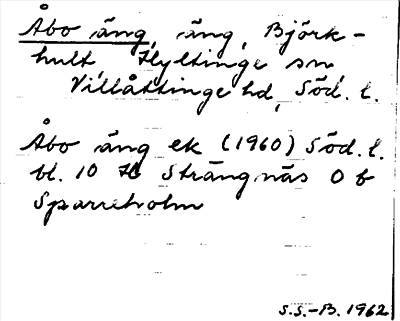 Åbo äng, äng, Björk-
hult Hyltinge sn,
Villåttinge hd, Söd. l.
Åbo äng ek (1960) Söd. l.
bl. 10 H Strängnäs O b
Sparreholm
S.S.-B. 1962